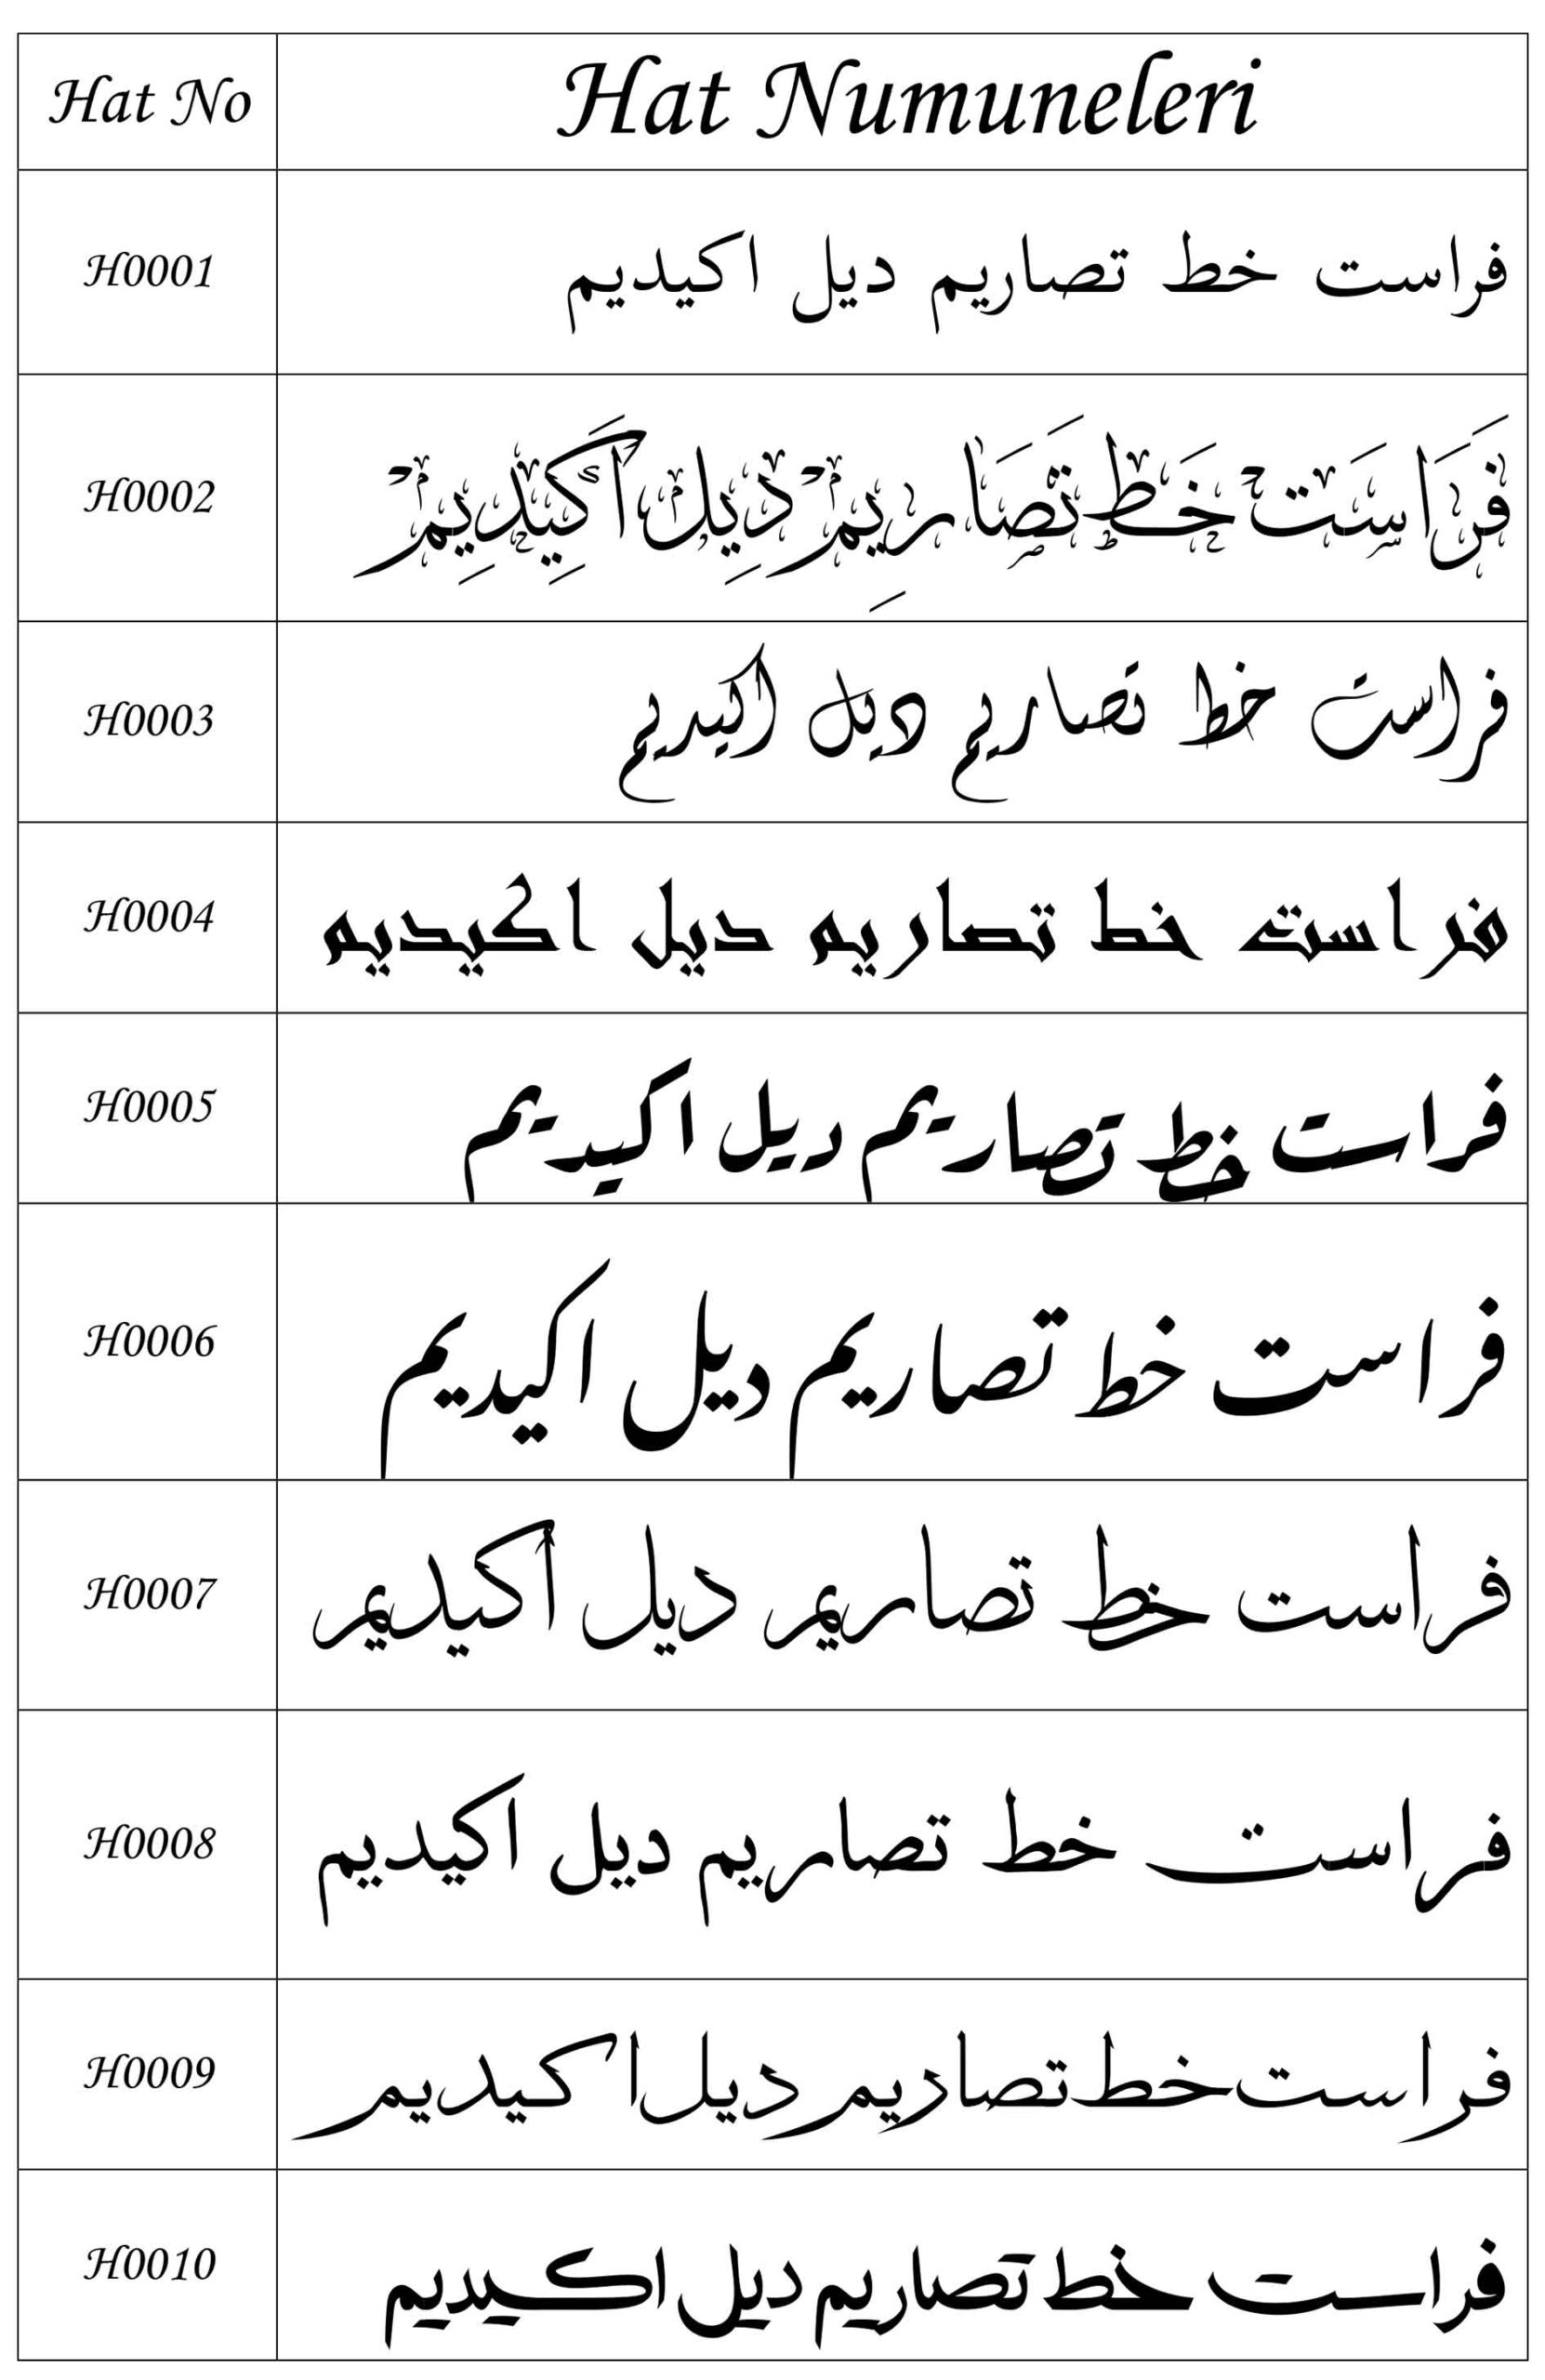 Hat No Hat Numuneleri
H0001 فراست خط تصاريم ديل اكيديم
H0002 فَرَاسَت خَط تَصَاريِم ديِل اَكيِديِم
H0003 فراست خط تصاريم ديل اكيديم
H0004 فراست خط تصاريم ديل اكيديم
H0005 فراست خط تصاريم ديل اكيديم
H0006 فراست خط تصاريم ديل اكيديم
H0007 فراست خط تصاريم ديل اكيديم
H0008 فراست خط تصاريم ديل اكيديم
H0009 فراست خط تصاريم ديل اكيديم
H0010 فراست خط تصاريم ديل اكيديم